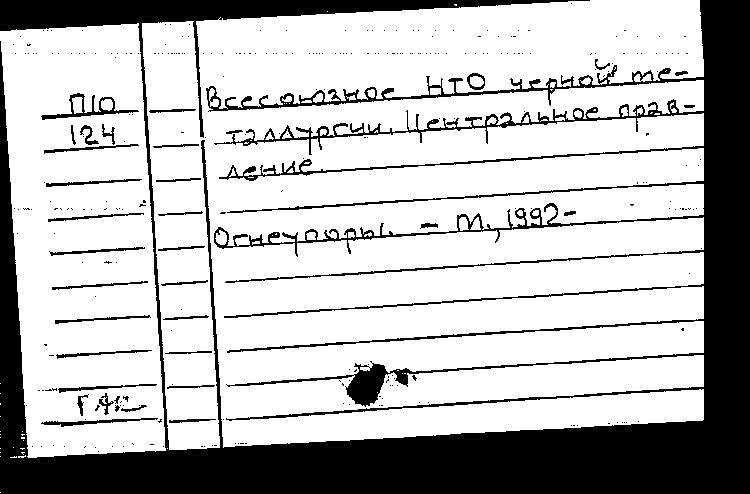 П10
124
Всесоюзное НТО черной ме-
таллургии. Центральное прав-
ление.
Огнеупоры. - М., 1992-